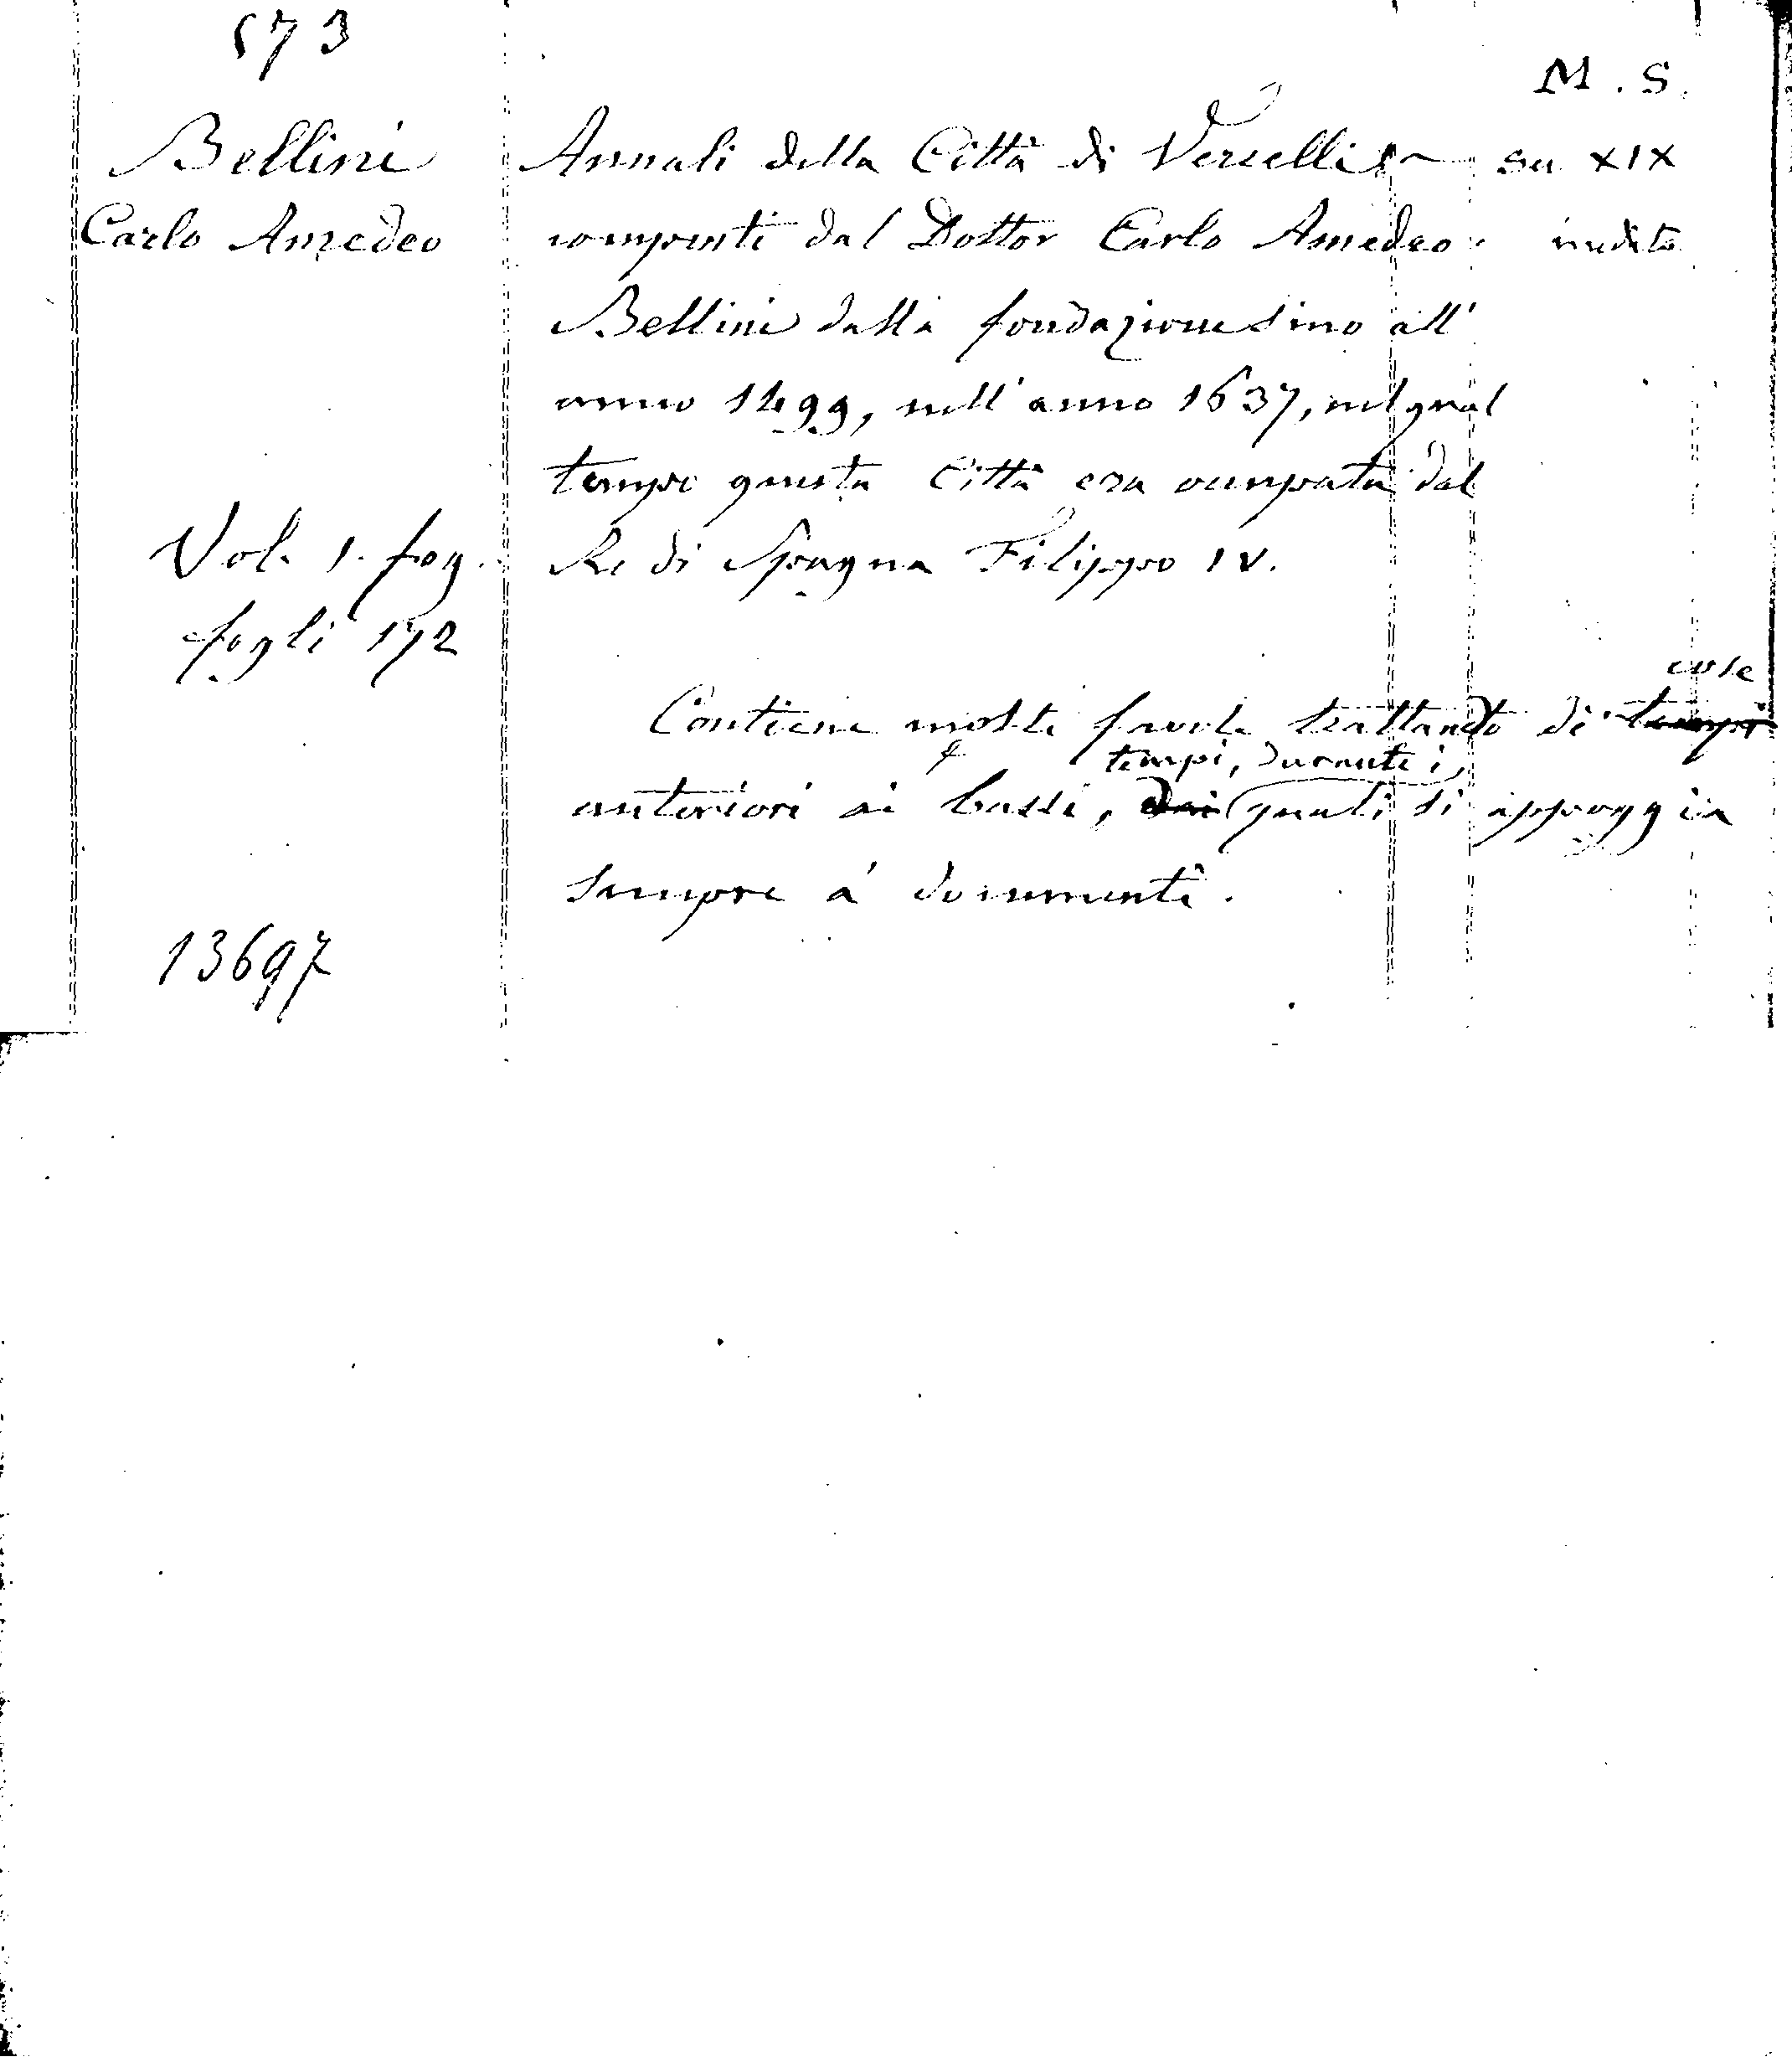 573
M. S.
Bellini
Carlo Amedeo
Annali della Città di Vercelli
composti dal Dottor Carlo Amedeo
Bellini dalla fondazione sino all'
anno 1499, nell'anno 1637, nel qual
tempo questa Città era occupata dal
Re di Spagna Filippo IV.
sec XIX
inedito
Vol. 1. fog.
fogli 172
cose
Contiene molte favole trattando di tempi
tempi, durante i
anteriori ai bassi, dai quali si appoggia
sempre a' documenti.
13697